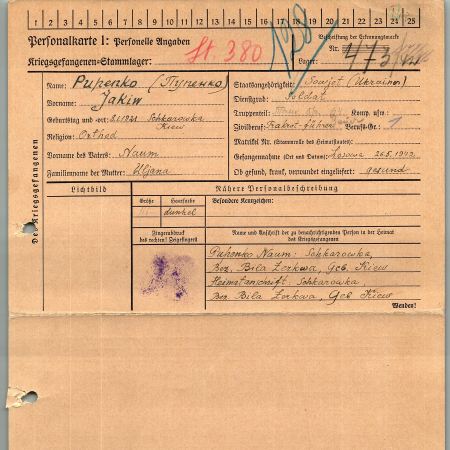 1 2 3 4 5 6 7 8 9 10 11 12 13 14 15 16 17 18 19 20 21 22 23 24 25
Personalkarte I: Personelle Angaben
Kriegsgefangenen-Stammlager:
St. 380
198
Beschriftung der Erkennungsmarke
Nr.
Lager:
Name: Pupenko (Пупенко)
Vorname: Jakiw
Geburtstag und -ort: Schkarowka
Kiew
Religion: Orthod
Vorname des Vaters: Naum
Familienname der Mutter: Uljana
Staatsangehörigkeit: Sowjet (Ukrainer)
Dienstgrad: Soldat
Truppenteil: Komp. usw.:
Zivilberuf: Berufs-Gr.: 1
Matrikel Nr. (Stammrolle des Heimatstaates):
Gefangennahme (Ort und Datum): 26.5.1942
Ob gesund, krank, verwundet eingeliefert: gesund
Des Kriegsgefangenen
Lichtbild
Nähere Personalbeschreibung
Größe
Haarfarbe
dunkel
Besondere Kennzeichen:
Fingerabdruck
des rechten! Zeigefinger!
Name und Anschrift der zu benachrichtigenden Person in der Heimat
des Kriegsgefangenen
Puhenko Naum: Schkarowka,
Bez. Bila Zerkwa, Geb. Kiew
Heimatanschrift: Schkarowka
Bez. Bila Zerkwa, Geb Kiew
Wenden!